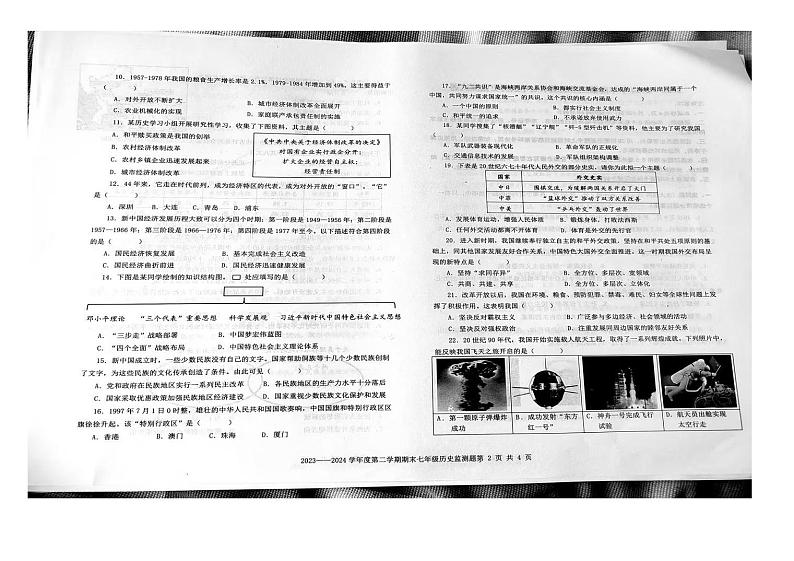 10．1957-1978 年我国的粮食生产增长率是 2.1%，1979-1984 年增加到 49%，这主要得益于
（　　）
A．对外开放不断扩大　B．城市经济体制改革全面展开
C．农业机械化的实现　D．家庭联产承包责任制的实施
11．某历史学习小组开展研究性学习，收集了下图资料，其主题是（　　）
A．和平赎买政策是我国的创举
B．农村经济体制改革
C．农村乡镇企业迅速发展起来
D．城市经济体制改革
《中共中央关于经济体制改革的决定》
对国有企业实行政企分开：
扩大企业的经营自主权；
经营责任制
12．44 年来，它走在时代前列，成为经济特区的代表，成为对外开放的“窗口”。“它”
是（　　）
A．深圳　B．大连　C．青岛　D．浦东
13．新中国经济发展历程大致可以分为四个时期：第一阶段是 1949—1956 年；第二阶段是
1957—1966 年；第三阶段是 1966—1976 年；第四阶段是 1977 年至今。以下描述符合第四阶段
的是（　　）
A．国民经济恢复发展　B．基本完成社会主义改造
C．国民经济曲折前进　D．国民经济迅速健康发展
14．下图是某同学绘制的知识结构图，处应填写的是（　　）
邓小平理论　“三个代表”重要思想　科学发展观　习近平新时代中国特色社会主义思想
A．“三步走”战略部署　B．中国梦宏伟蓝图
C．“四个全面”战略布局　D．中国特色社会主义理论体系
15．新中国成立时，一些少数民族没有自己的文字。国家帮助侗族等十几个少数民族创制
了文字，为这些民族的文化传承创造了条件。由此可见（　　）
A．党和政府在民族地区实行一系列民主改革　B．各民族地区的生产力水平十分落后
C．国家采取优惠政策加强民族地区经济建设　D．国家重视少数民族文化保护和发展
16．1997 年 7 月 1 日 0 时整，雄壮的中华人民共和国国歌奏响，中国国旗和特别行政区区
旗徐徐升起。该“特别行政区”是（　　）
A．香港　B．澳门　C．珠海　D．厦门
17．“九二共识”是海峡两岸关系协会和海峡交流基金会，达成的“海峡两岸同属于一个
中国，共同努力谋求国家统一”的共识，这个共识的核心内涵是（　　）
A．一个中国的原则　B．都实行社会主义制度
C．和平统一的追求　D．不承诺放弃使用武力
18．某同学搜集了“核潜艇”“辽宁舰”“歼-5 型歼击机”等资料，他主要为了研究我国
（　　）
A．军队武器装备现代化　B．革命军队的正规化
C．交通信息技术的发展　D．军队组织架构调整
19．下表是 20 世纪六七十年代人民外交的部分史实，请你为此拟一个主题（　　）
国家　外交史实
中日　围棋交流，为缓解两国关系开启了大门
中菲　“篮球外交”推动了双方关系改善
中美　“乒乓外交”轰动了世界
A．发展体育运动，增强人民体质　B．锻炼身体，打败法西斯
C．任何外交活动都离不开体育　D．体育是外交的先行官
20．进入新时期，我国继续奉行独立自主的和平外交政策，坚持在和平共处五项原则的基
础上，同其他国家发展友好合作关系，中国特色大国外交全面推进。这一时期我国外交布局呈
现的新特点是（　　）
A．坚持“求同存异”　B．全方位、多层次、宽领域
C．共商、共建、共享　D．全方位、多层次、立体化
21．改革开放以后，我国在环境、粮食、预防犯罪、禁毒、难民、妇女等全球性问题上发
挥了积极作用。这表明我国（　　）
A．坚决反对霸权主义　B．广泛参与多边经济、社会领域的活动
C．坚决反对强权政治　D．注重发展同周边国家的睦邻友好关系
22．20 世纪 90 年代，我国开始实施载人航天工程，取得了一系列辉煌成就。下列照片中，
能反映我国飞天之旅开启的是（　　）
A．第一颗原子弹爆炸成功　B．成功发射“东方红一号”　C．神舟一号完成飞行试验　D．航天员出舱实现太空行走
2023——2024 学年度第二学期期末七年级历史监测题第 2 页 共 4 页